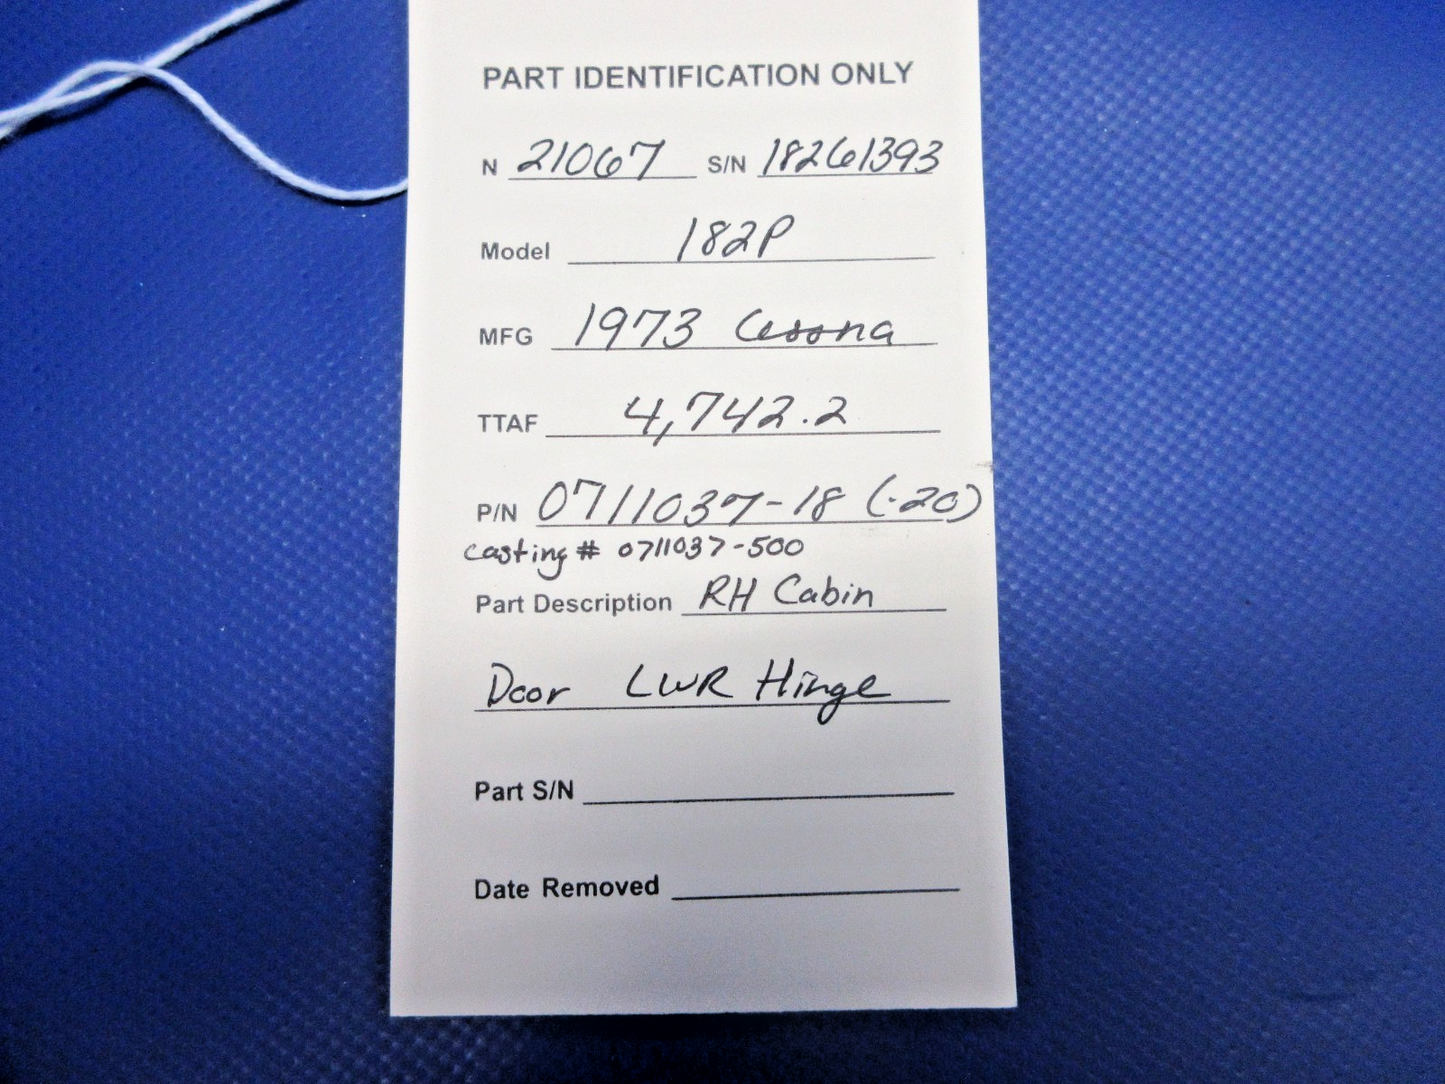 PART IDENTIFICATION ONLY
N 21067 S/N 18261393
Model 182P
MFG 1973 Cessna
TTAF 4,742.2
P/N 0711037-18 (-20)
casting # 0711037-500
Part Description RH Cabin
Door LWR Hinge
Part S/N
Date Removed